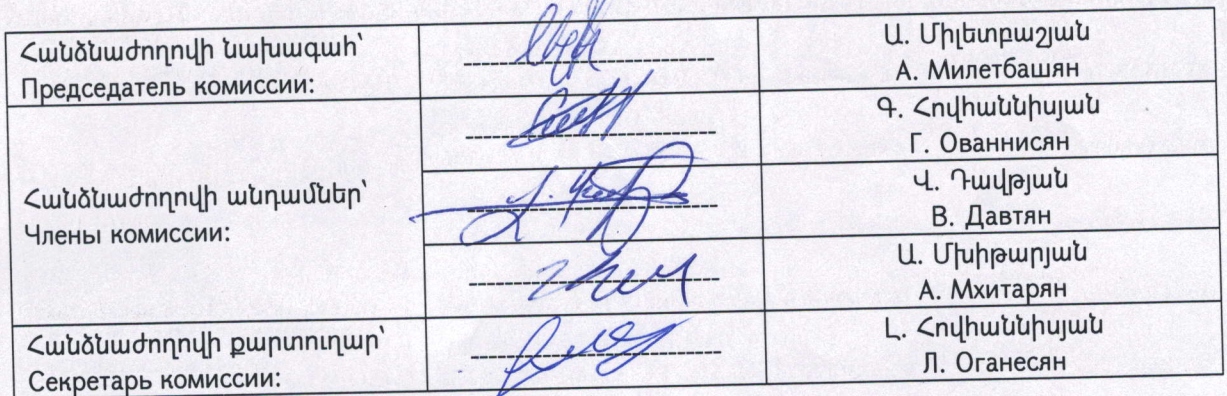 Հանձնաժողովի նախագահ՝
Председатель комиссии:
Ա. Միլետբաշյան
А. Милетбашян
Հանձնաժողովի անդամներ՝
Члены комиссии:
Գ. Հովհաննիսյան
Г. Ованнисян
Վ. Դավթյան
В. Давтян
Ա. Մխիթարյան
А. Мхитарян
Հանձնաժողովի քարտուղար՝
Секретарь комиссии:
Լ. Հովհաննիսյան
Л. Оганесян